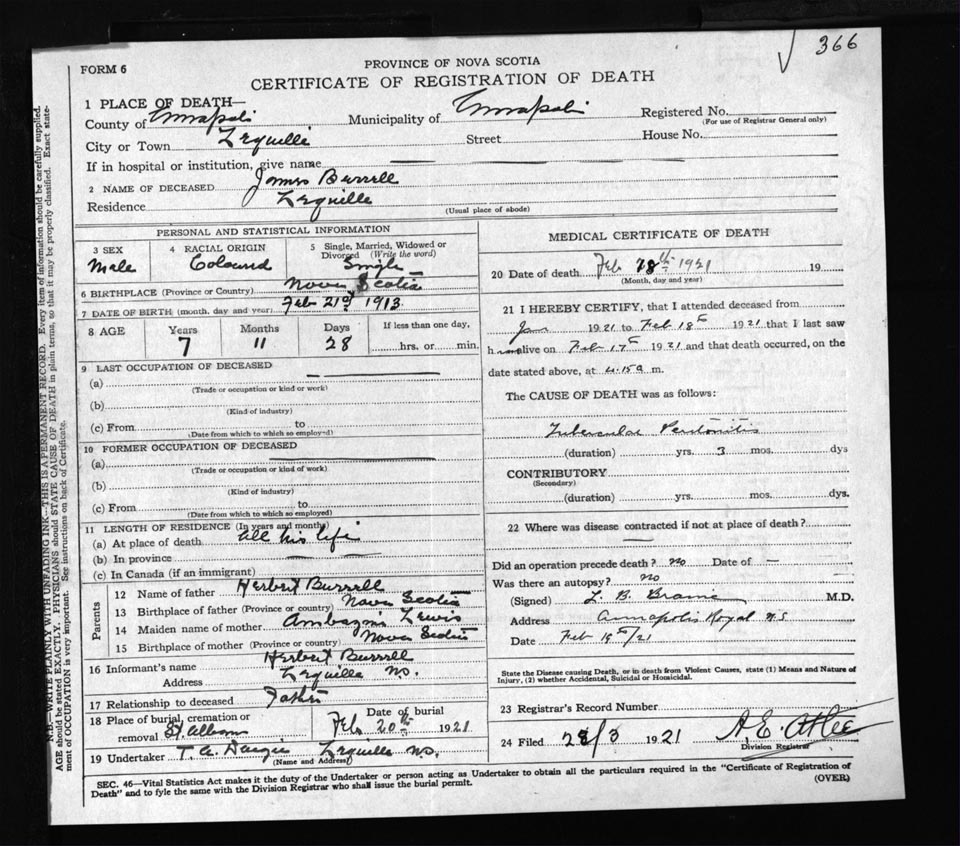 366
FORM 6
PROVINCE OF NOVA SCOTIA
CERTIFICATE OF REGISTRATION OF DEATH
1 PLACE OF DEATH—
County of Annapolis Municipality of Annapolis Registered No.
(For use of Registrar General only)
City or Town Lequille Street House No.
If in hospital or institution, give name
2 NAME OF DECEASED James Burrell
Residence Lequille
(Usual place of abode)
PERSONAL AND STATISTICAL INFORMATION
3 SEX Male
4 RACIAL ORIGIN Coloured
5 Single, Married, Widowed or Divorced (Write the word) Single
6 BIRTHPLACE (Province or Country) Nova Scotia
7 DATE OF BIRTH (month, day and year) Feb 21st, 1913
8 AGE Years 7 Months 11 Days 28 If less than one day, hrs. or min.
9 LAST OCCUPATION OF DECEASED
(a)
(Trade or occupation or kind or work)
(b)
(Kind of industry)
(c) From to
(Date from which to which so employed)
10 FORMER OCCUPATION OF DECEASED
(a)
(Trade or occupation or kind of work)
(b)
(Kind of industry)
(c) From to
(Date from which to which so employed)
11 LENGTH OF RESIDENCE (In years and months)
(a) At place of death all his life
(b) In province
(c) In Canada (if an immigrant)
Parents
12 Name of father Herbert Burrell
13 Birthplace of father (Province or country) Nova Scotia
14 Maiden name of mother Lewis
15 Birthplace of mother (Province or country) Nova Scotia
16 Informant's name Herbert Burrell
Address Lequille NS.
17 Relationship to deceased Father
18 Place of burial, cremation or removal St. Albans
Date of burial Feb. 20th 1921
19 Undertaker T. A. Lequille NS.
(Name and Address)
MEDICAL CERTIFICATE OF DEATH
20 Date of death Feb 18th 1921 19
(Month, day and year)
21 I HEREBY CERTIFY, that I attended deceased from
Jan 1921 to Feb 18th 1921 that I last saw
h im alive on Feb 17th 1921 and that death occurred, on the
date stated above, at 4.15 a m.
The CAUSE OF DEATH was as follows:
Tubercular Peritonitis
(duration) yrs. 3 mos. dys
CONTRIBUTORY
(Secondary)
(duration) yrs. mos. dys.
22 Where was disease contracted if not at place of death?
Did an operation precede death? No Date of —
Was there an autopsy? no
(Signed) L. B. Braine M.D.
Address Annapolis Royal NS
Date Feb 18th/21
State the Disease causing Death, or in death from Violent Causes, state (1) Means and Nature of
Injury, (2) whether Accidental, Suicidal or Homicidal.
23 Registrar's Record Number
24 Filed 28/3 1921 A. E. Atlee
Division Registrar
SEC. 46—Vital Statistics Act makes it the duty of the Undertaker or person acting as Undertaker to obtain all the particulars required in the "Certificate of Registration of
Death" and to fyle the same with the Division Registrar who shall issue the burial permit.
(OVER)
N.B.—WRITE PLAINLY WITH UNFADING INK—THIS IS A PERMANENT RECORD. Every item of information should be carefully supplied.
AGE should be stated EXACTLY. PHYSICIANS should STATE CAUSE OF DEATH in plain terms, so that it may be properly classified. Exact state-
ment of OCCUPATION is very important. See instructions on back of Certificate.